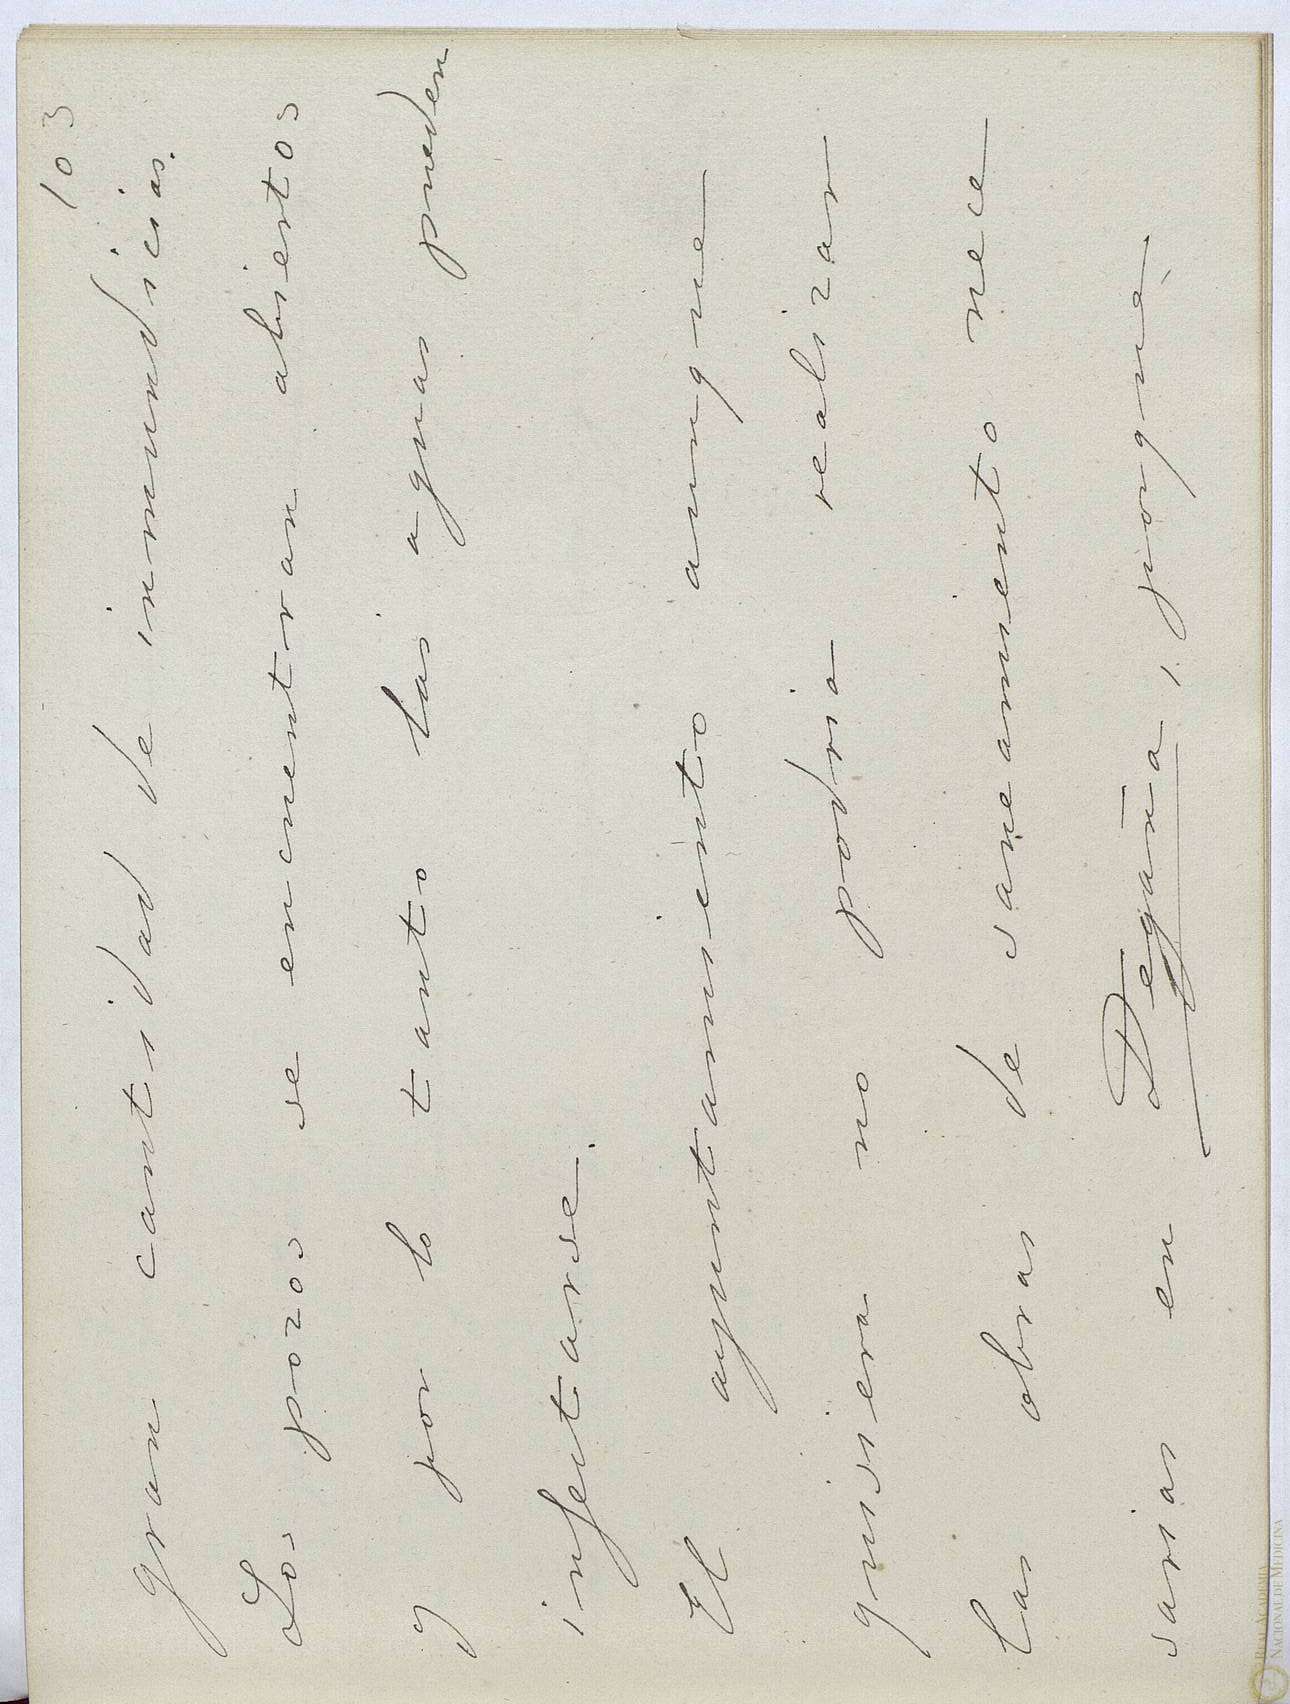 103
gran cantidad de inmundicias.
Los pozos se encuentran abiertos
y por lo tanto las aguas pueden
infectarse.
El ayuntamiento aunque
quisiera no podria realizar
las obras de saneamiento nece
sarias en Degaña, porque
REAL ACADEMIA
NACIONAL DE MEDICINA